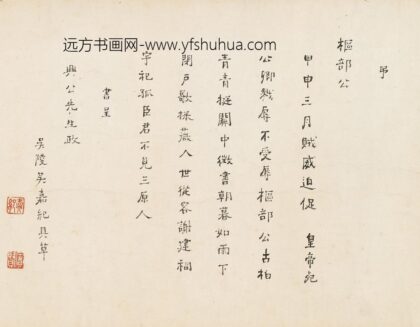 远方书画网-www.yfshuhua.com
弔
樞部公
甲申三月賊威迫促 皇帝宛
公卿戮辱不受辱樞部公古柏
青青挺關中徵書朝暮如雨下
閉戶歌採薇人世從容謝建祠
宇祀孤臣君不見三原人
書呈
興公先生政
吳陸嘉紀具草